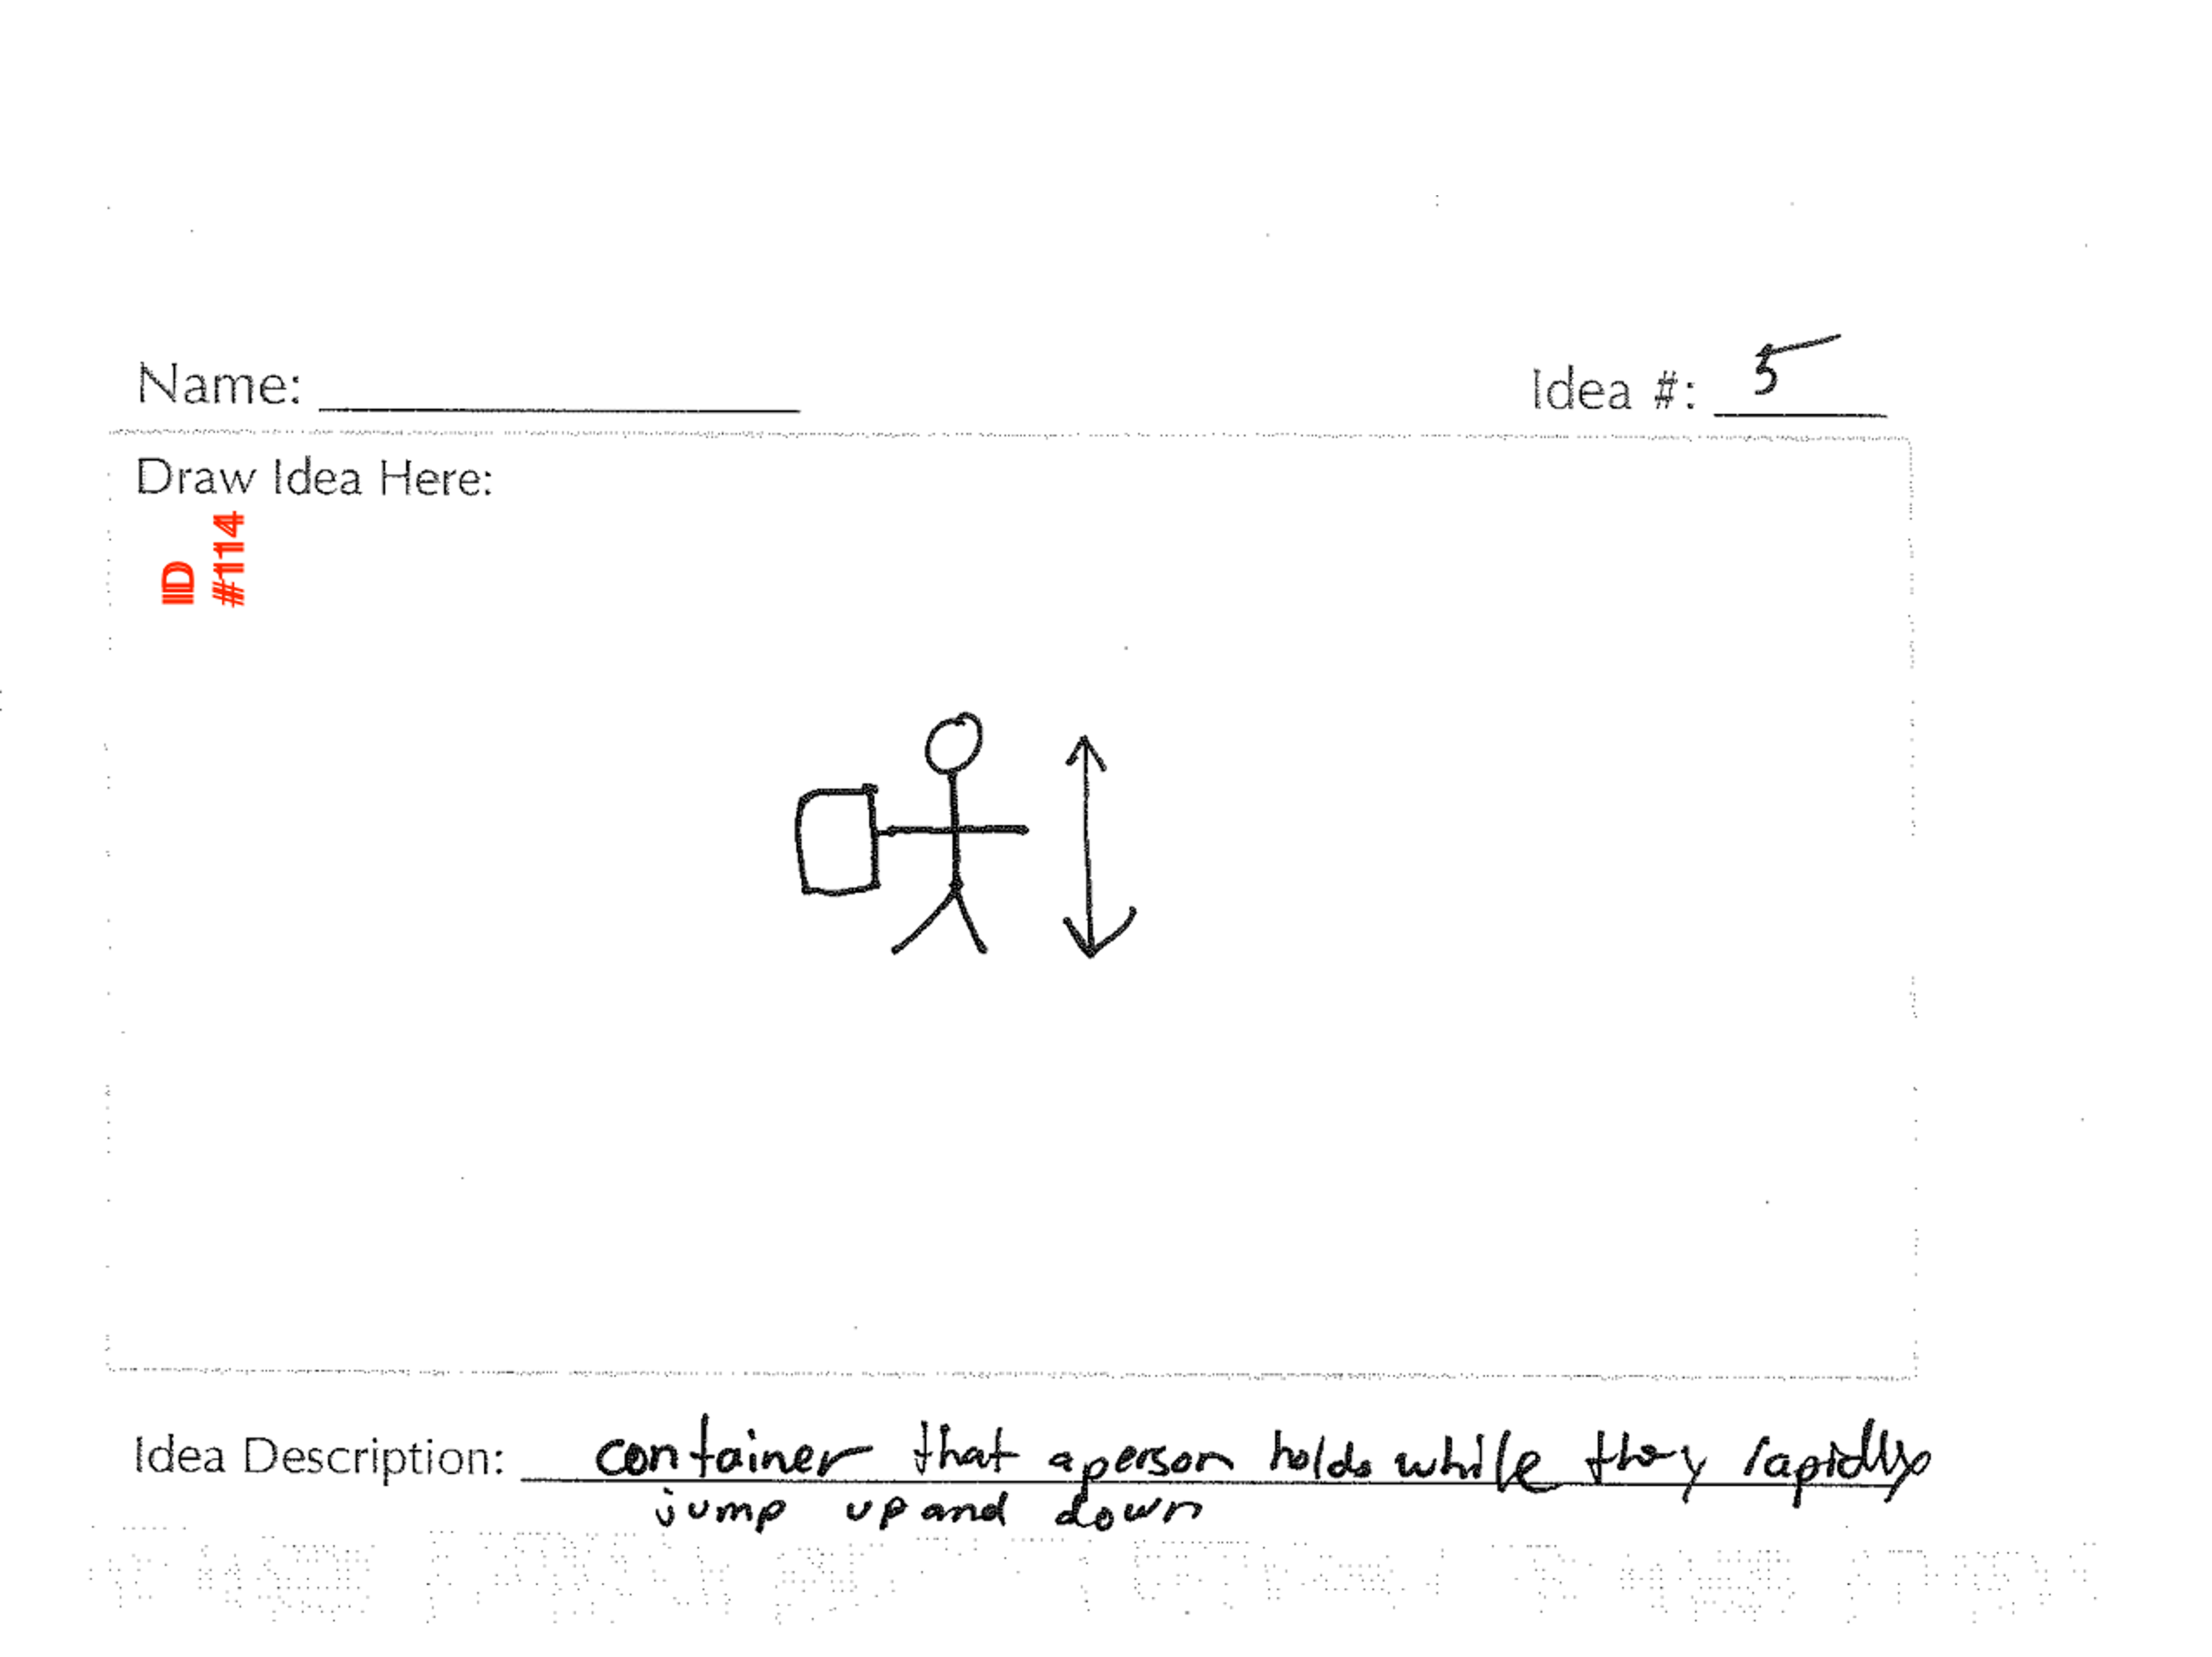 Name:
Idea #: 5
Draw Idea Here:
ID
#114
Idea Description: container that a person holds while they rapidly
jump up and down